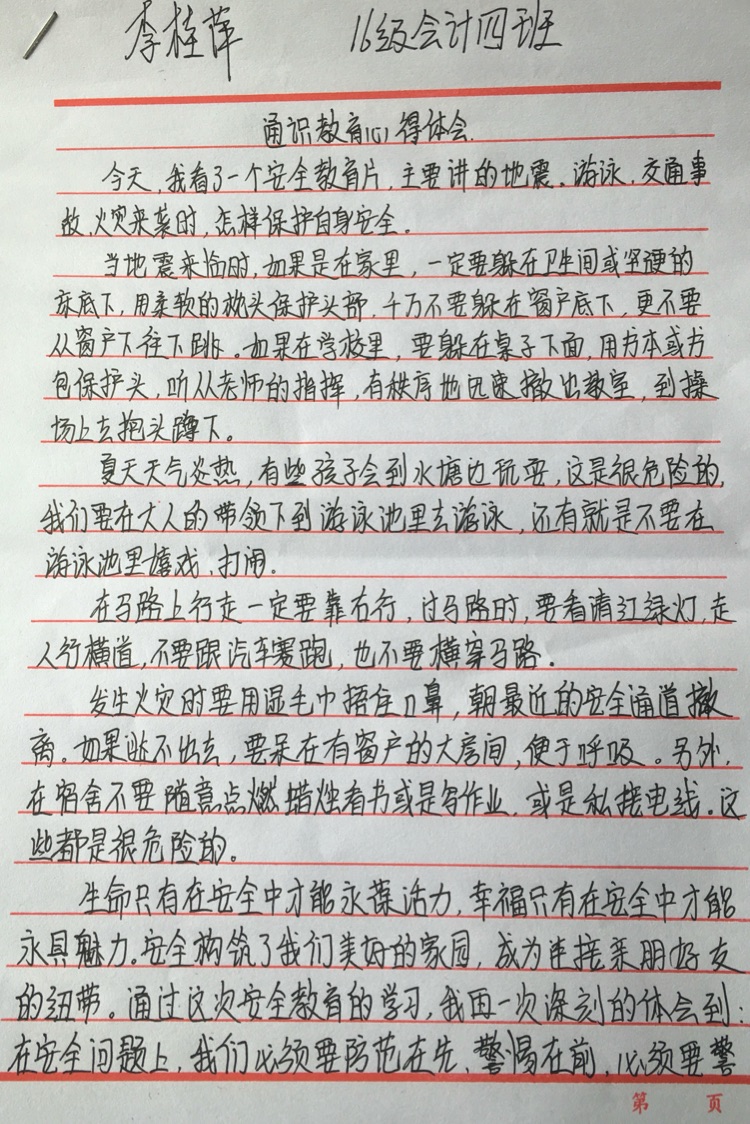 李桂萍 16级会计四班
通识教育心得体会.
今天,我看了一个安全教育片,主要讲的地震、游泳、交通事
故、火灾来袭时,怎样保护自身安全。
当地震来临时,如果是在家里,一定要躲在卫生间或坚硬的
床底下,用柔软的枕头保护头部,千万不要躲在窗户底下,更不要
从窗户下往下跳。如果在学校里,要躲在桌子下面,用书本或书
包保护头,听从老师的指挥,有秩序地迅速撤出教室,到操
场上去抱头蹲下。
夏天天气炎热,有些孩子会到水塘边玩耍,这是很危险的,
我们要在大人的带领下到游泳池里去游泳,还有就是不要在
游泳池里嬉戏、打闹.
在马路上行走一定要靠右行,过马路时,要看清红绿灯,走
人行横道,不要跟汽车赛跑,也不要横穿马路。
发生火灾时要用湿毛巾捂住口鼻,朝最近的安全通道撤
离。如果逃不出去,要呆在有窗户的大房间,便于呼吸。另外,
在宿舍不要随意点燃蜡烛看书或是写作业,或是私接电线。这
些都是很危险的。
生命只有在安全中才能永葆活力,幸福只有在安全中才能
永具魅力。安全构筑了我们美好的家园,成为连接亲朋好友
的纽带。通过这次安全教育的学习,我再一次深刻的体会到:
在安全问题上,我们必须要防范在先、警惕在前,必须要警
第 页